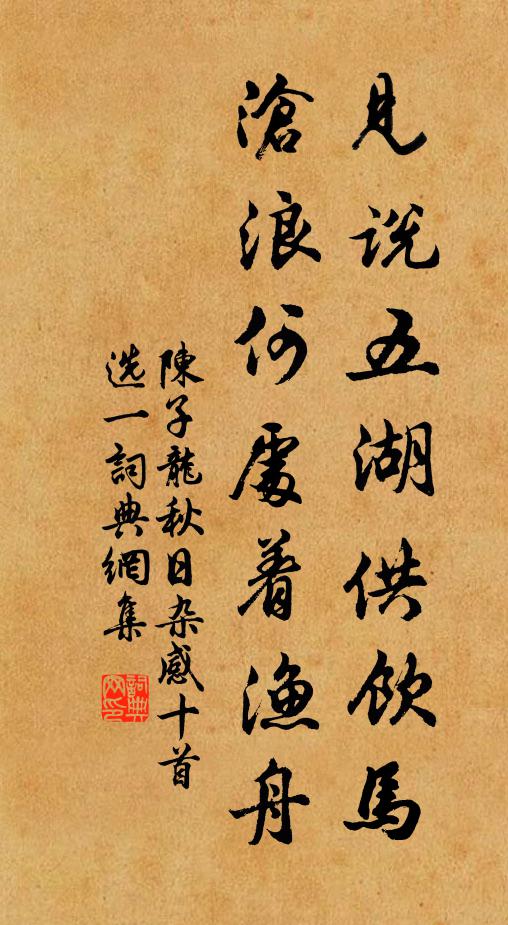 見説五湖供飲馬
滄浪何處着漁舟
陳子龍秋日杂感十首
选一詞典網集
詞典網印